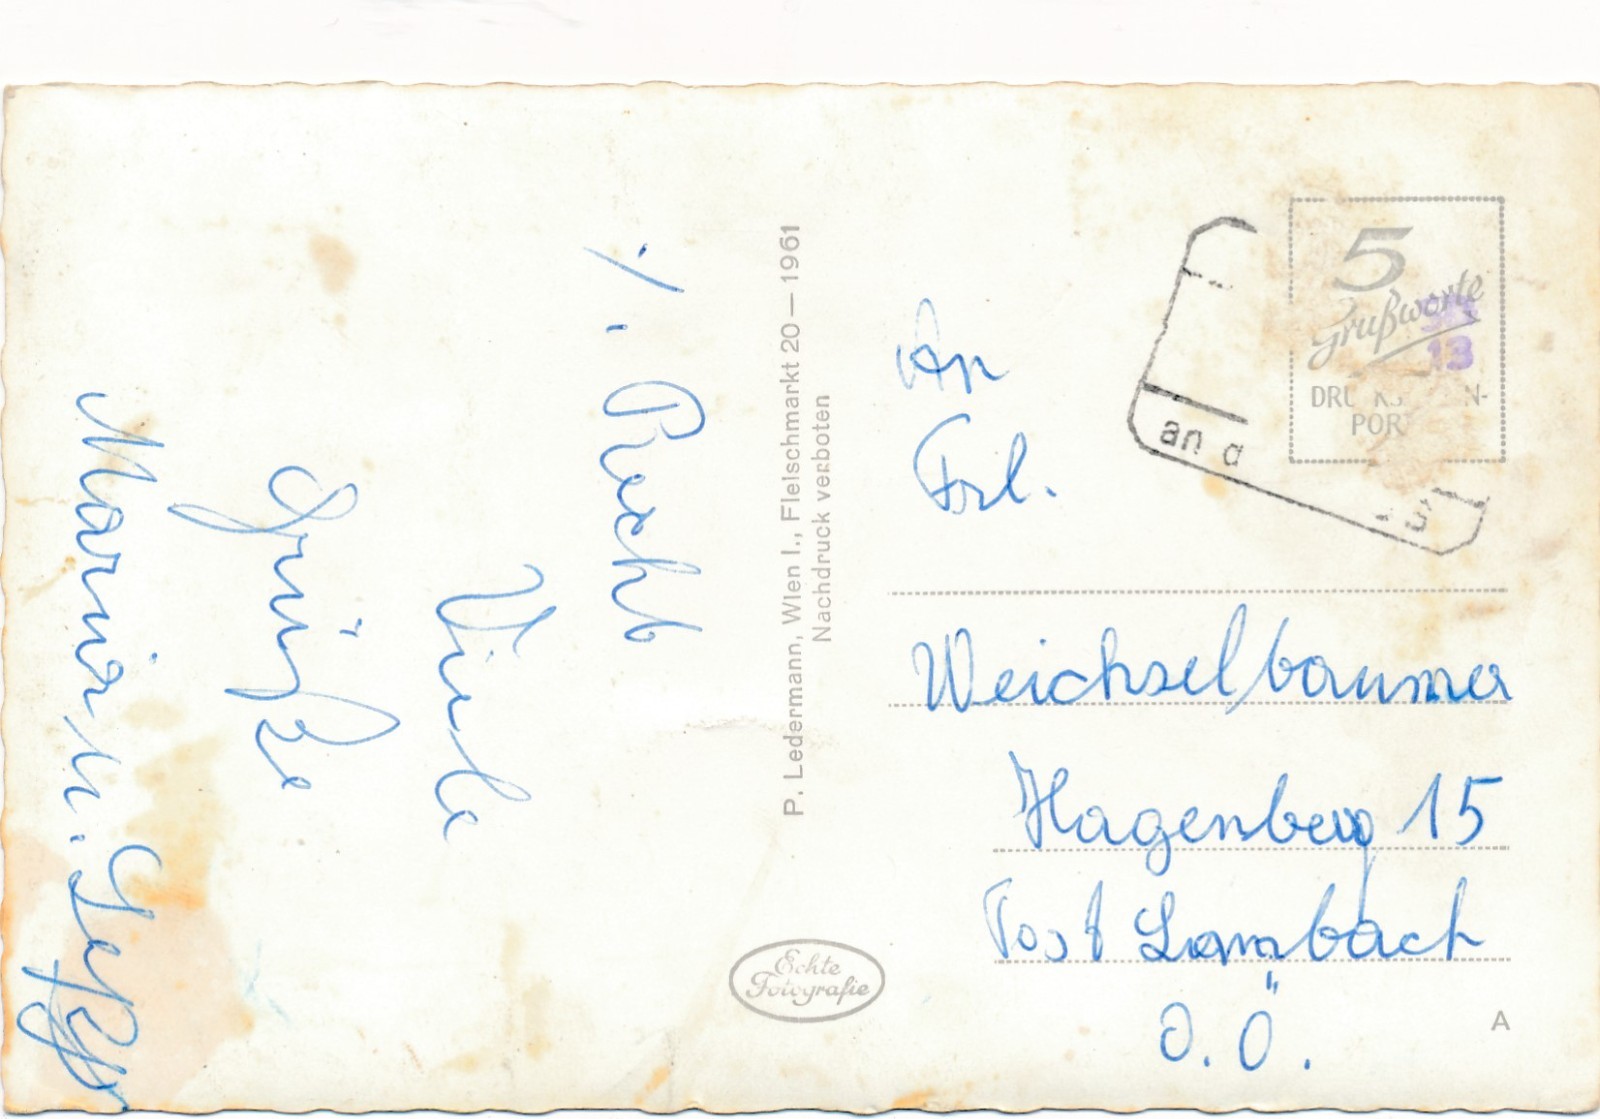 Viele
Grüße
P. Ledermann, Wien I., Fleischmarkt 20 — 1961
Nachdruck verboten
Echte
Fotografie
5
Grußworte
13
An
Frl.
Weichselbaumer
Hagenberg 15
Post Lambach
O.Ö.
A